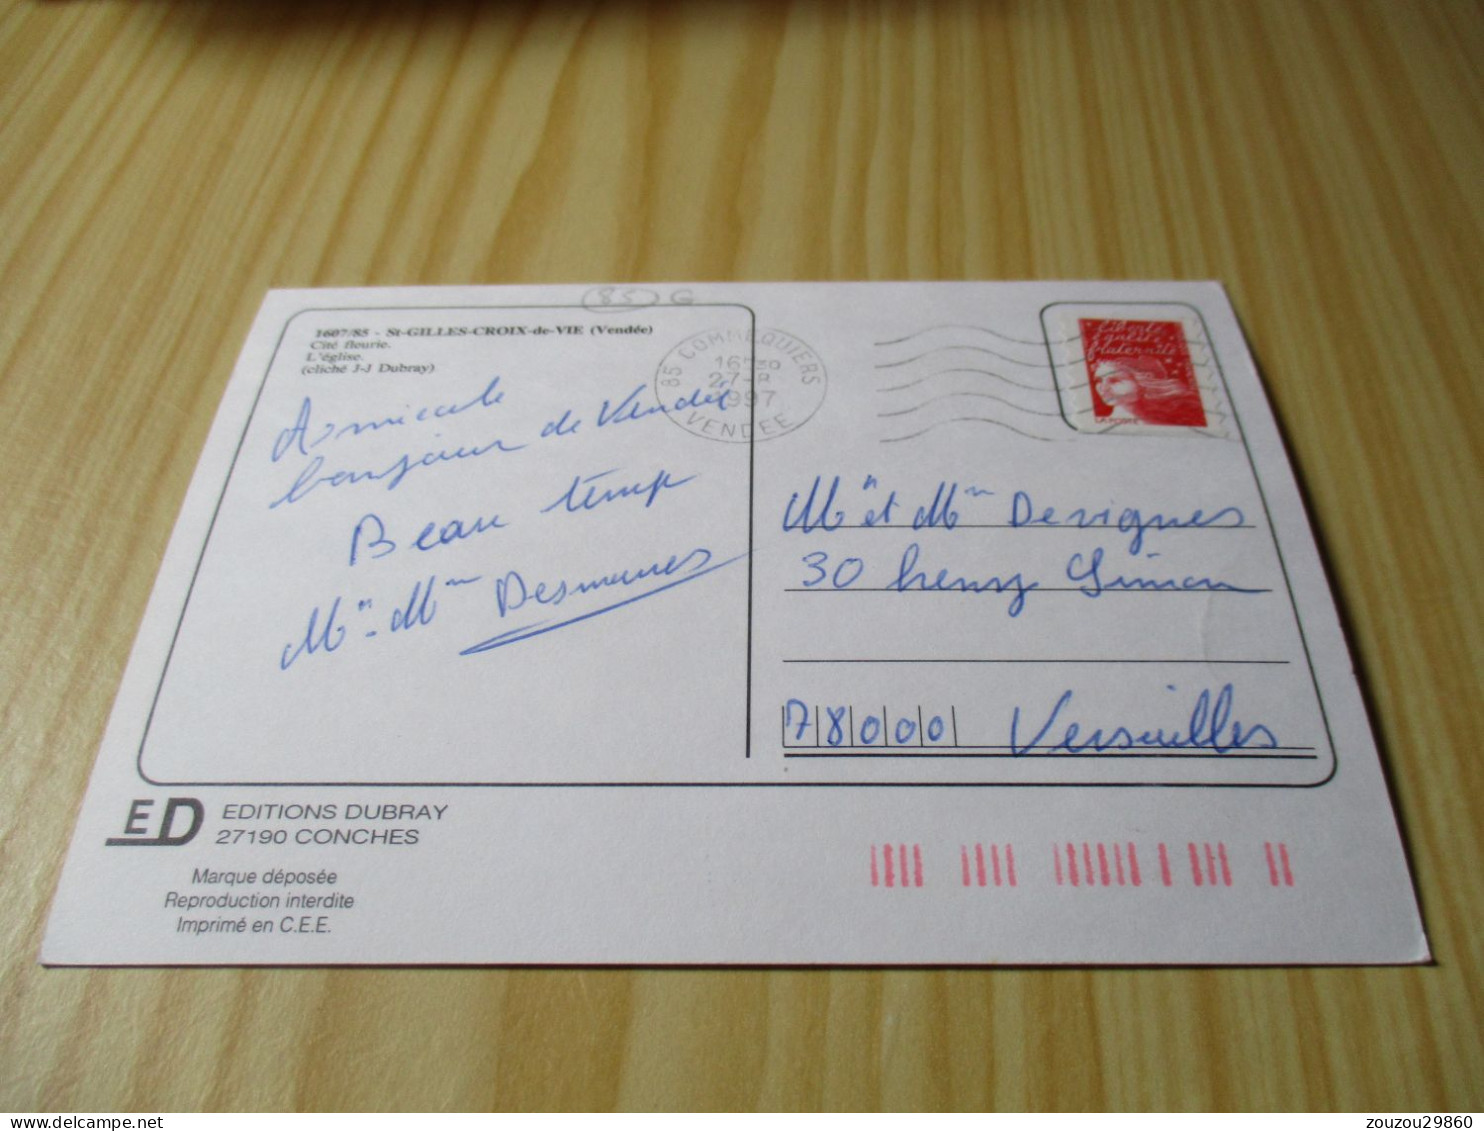 (85) G
1607/85 - St-GILLES-CROIX-de-VIE (Vendée)
Cité fleurie.
L'église.
(cliché J-J Dubray)
85 COMMEQUIERS
16H30
27-8
1997
VENDEE
Liberté
égalité
fraternité
LA POSTE
Amicale
bonjour de Vendée
Beau temp
Mr. Mme Desmunes
Mr et Mme Devignes
30 henry Simon
78000 Versailles
ED
EDITIONS DUBRAY
27190 CONCHES
Marque déposée
Reproduction interdite
Imprimé en C.E.E.
delcampe.net
zouzou29860